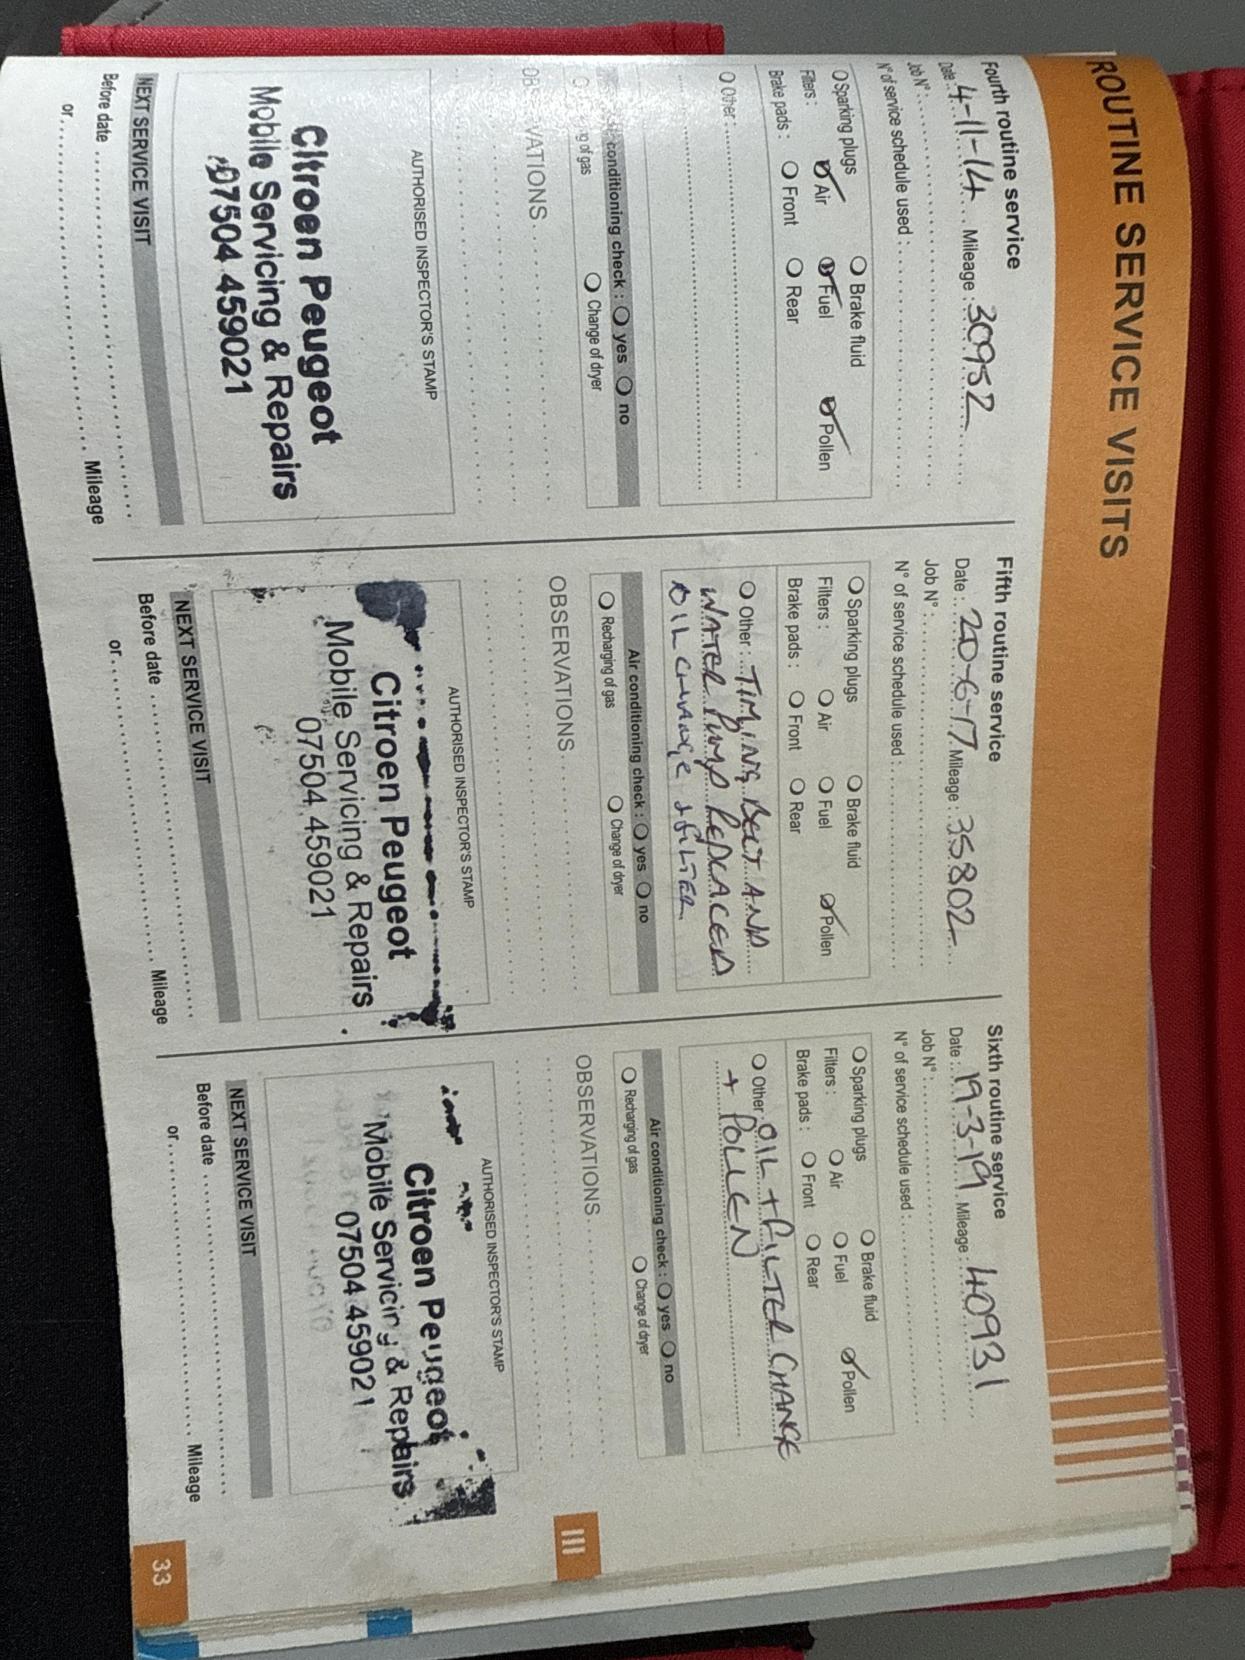 ROUTINE SERVICE VISITS
Fourth routine service
Date : 4-11-14 Mileage : 30952
Job N° :
N° of service schedule used :
Sparking plugs Brake fluid
Filters : Air Fuel Pollen
Brake pads : Front Rear
Other :
conditioning check : yes no
ng of gas Change of dryer
OB VATIONS
AUTHORISED INSPECTOR'S STAMP
Citroen Peugeot
Mobile Servicing & Repairs
07504 459021
NEXT SERVICE VISIT
Before date
or Mileage
Fifth routine service
Date : 20-6-17 Mileage : 35802
Job N° :
N° of service schedule used :
Sparking plugs Brake fluid
Filters : Air Fuel Pollen
Brake pads : Front Rear
Other : TIMING BELT AND
WATER PUMP REPLACED
OIL CHANGE & FILTER
Air conditioning check : yes no
Recharging of gas Change of dryer
OBSERVATIONS
AUTHORISED INSPECTOR'S STAMP
Citroen Peugeot
Mobile Servicing & Repairs
07504 459021
NEXT SERVICE VISIT
Before date
or Mileage
Sixth routine service
Date : 19-3-19 Mileage : 40931
Job N° :
N° of service schedule used :
Sparking plugs Brake fluid
Filters : Air Fuel Pollen
Brake pads : Front Rear
Other : OIL + FILTER CHANGE
+ POLLEN
Air conditioning check : yes no
Recharging of gas Change of dryer
OBSERVATIONS
AUTHORISED INSPECTOR'S STAMP
Citroen Peugeot
Mobile Servicing & Repairs
07504 459021
NEXT SERVICE VISIT
Before date
or Mileage
III
33